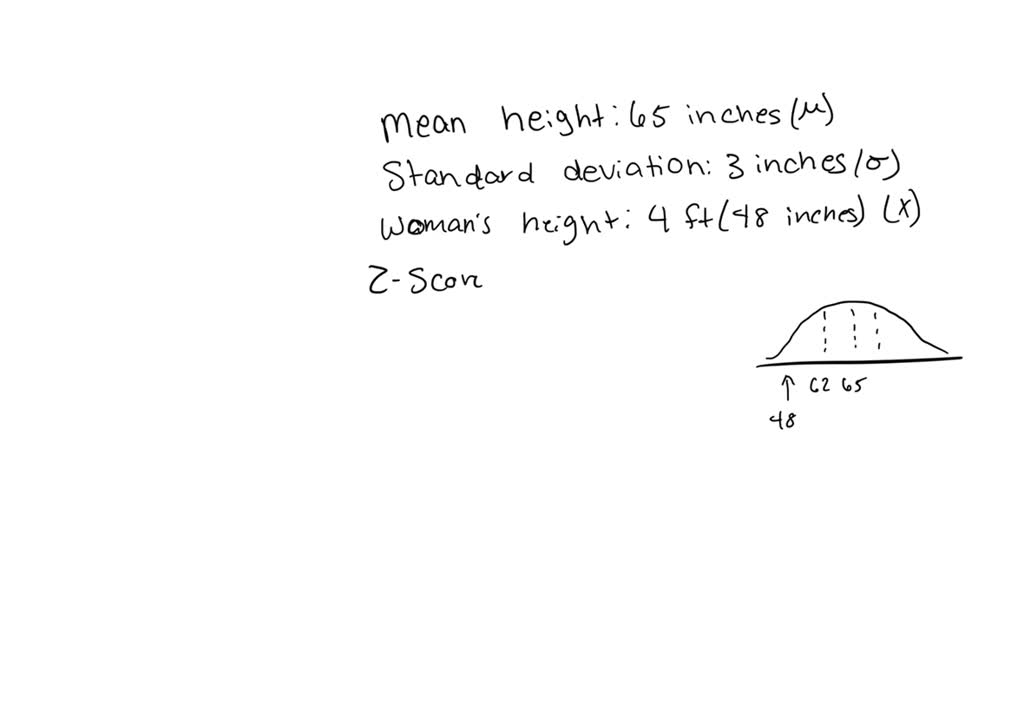 mean height: 65 inches (μ)
Standard deviation: 3 inches (σ)
Woman's height: 4 ft (48 inches) (x)
Z-Score
62 65
48